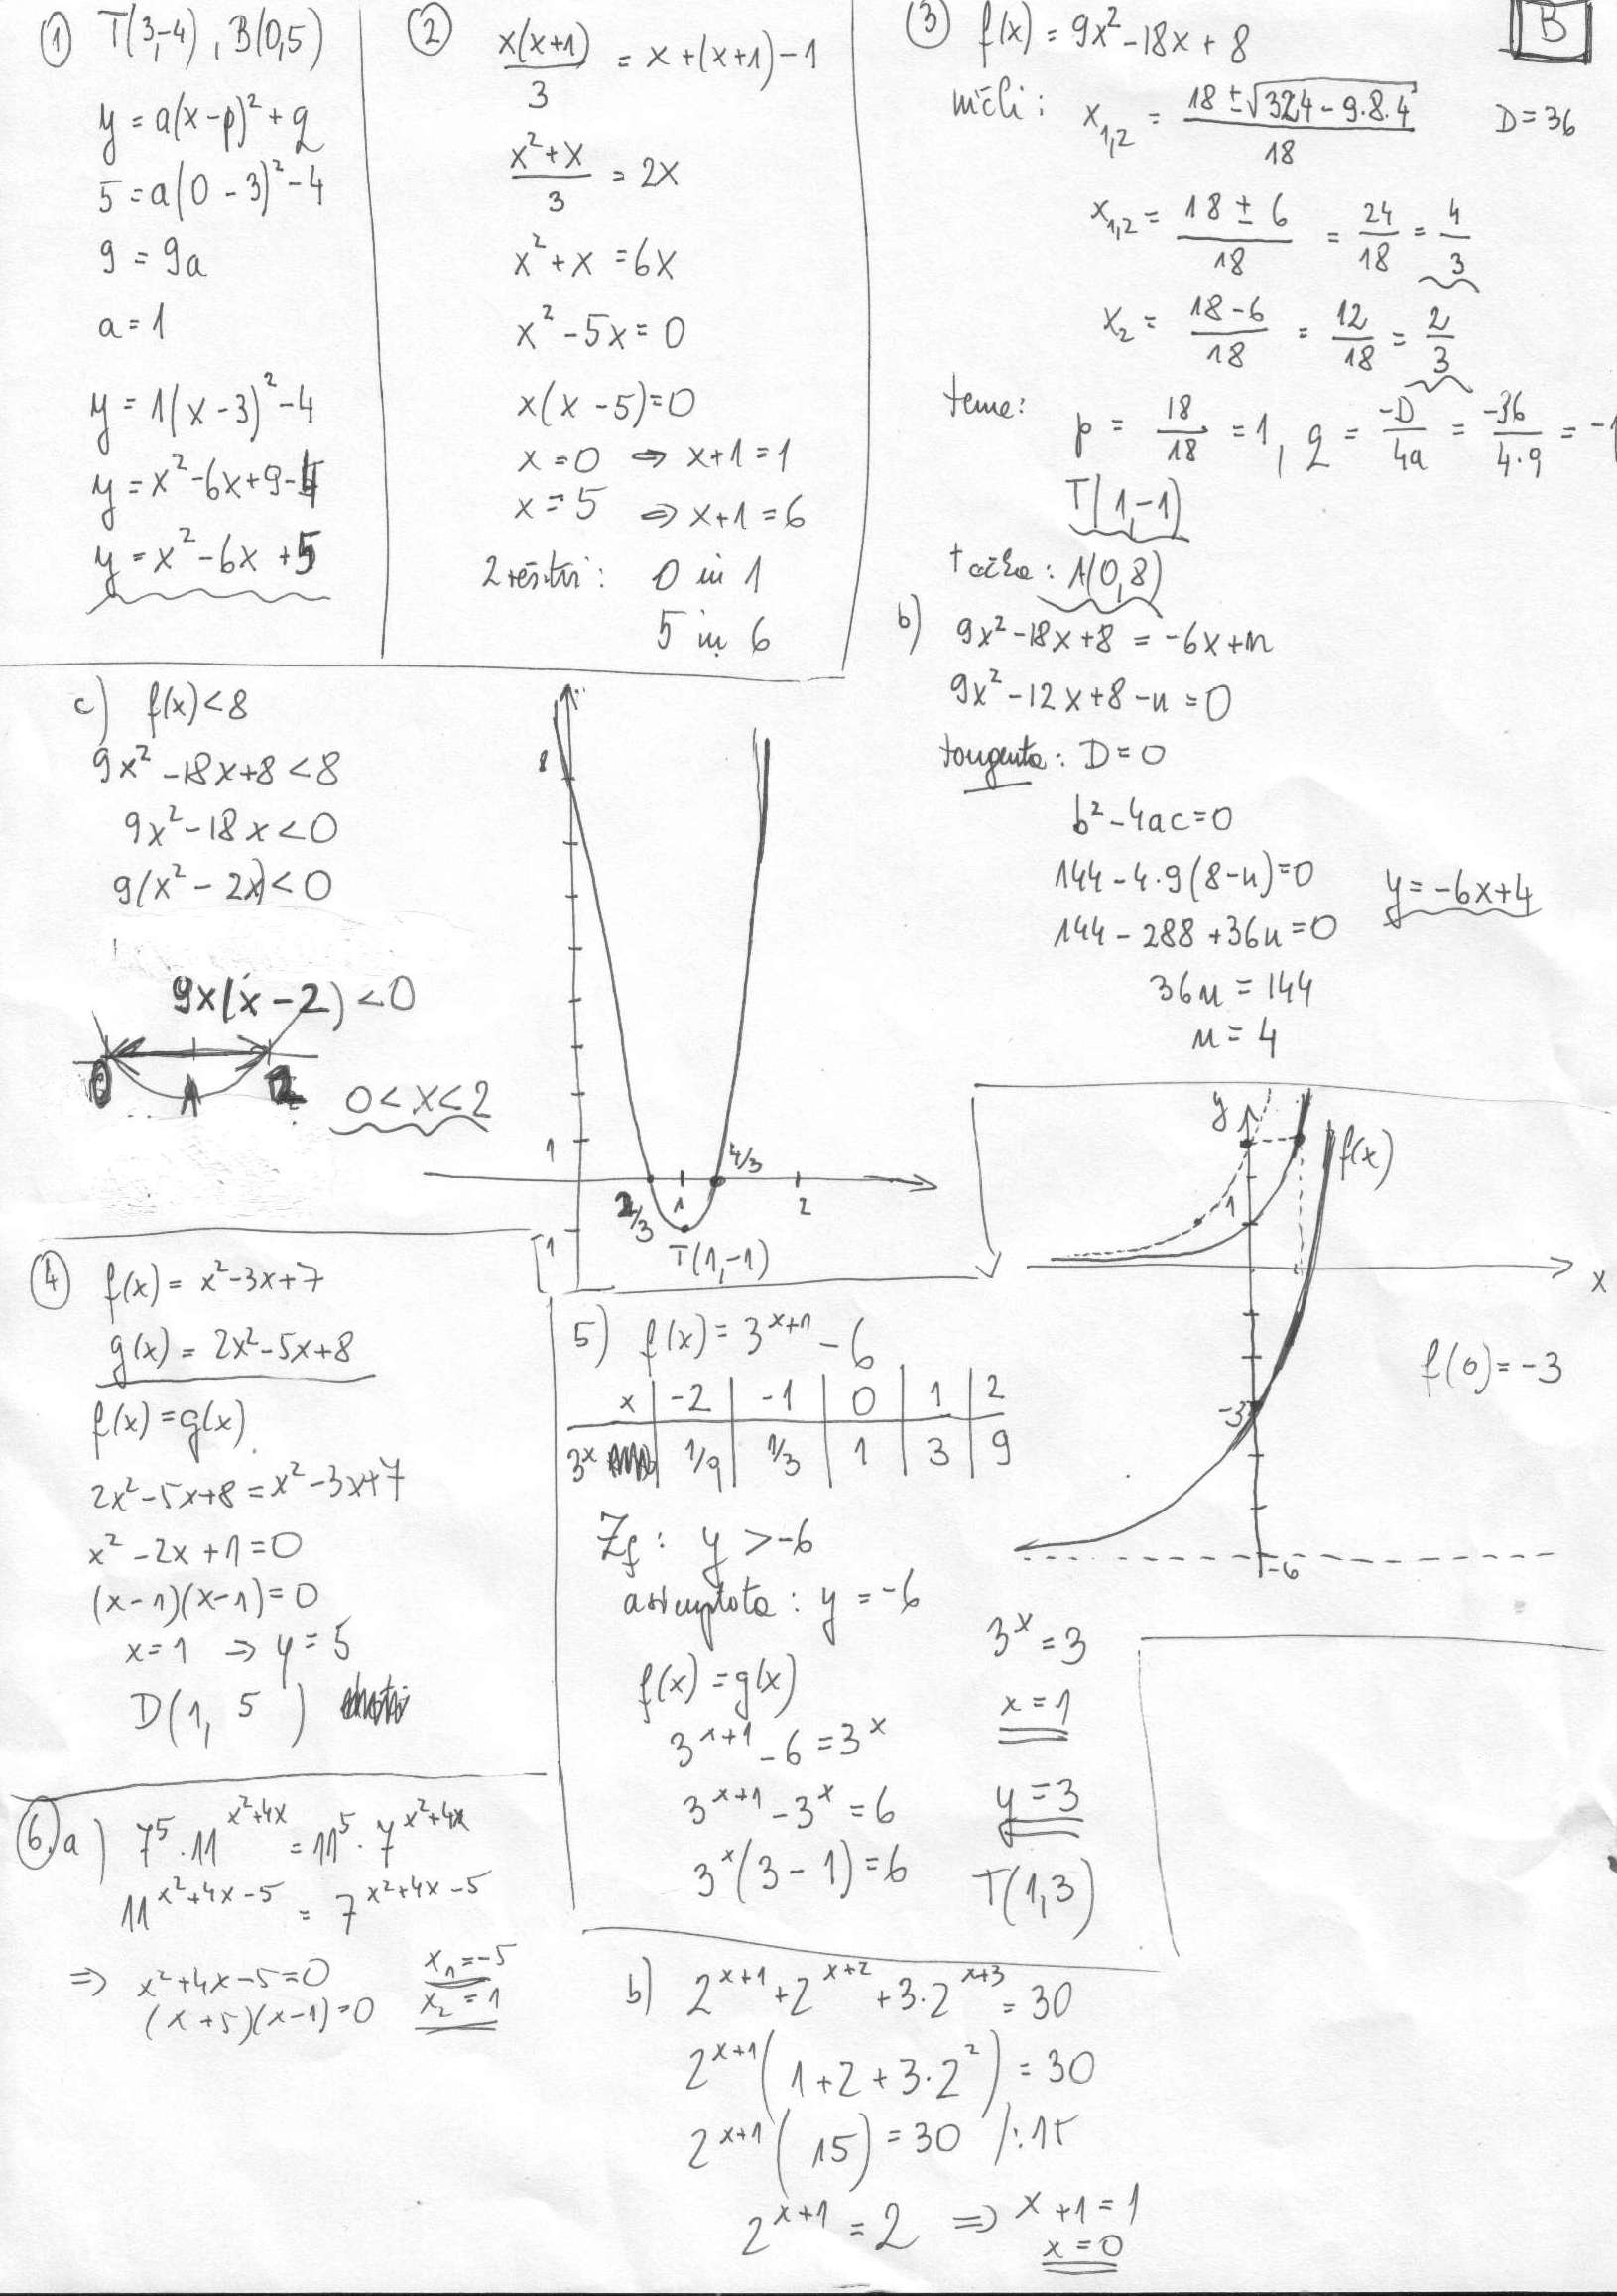 ① T(3,-4), B(0,5)
y = a(x-p)² + q
5 = a(0-3)² - 4
9 = 9a
a = 1
y = 1(x-3)² - 4
y = x² - 6x + 9 - 4
y = x² - 6x + 5
② x(x+1)/3 = x + (x+1) - 1
(x²+x)/3 = 2x
x² + x = 6x
x² - 5x = 0
x(x-5) = 0
x = 0 ⇒ x+1 = 1
x = 5 ⇒ x+1 = 6
2 rešitvi: 0 in 1
5 in 6
③ f(x) = 9x² - 18x + 8
B
ničli: x₁,₂ = (18 ± √(324 - 9·8·4))/18 D = 36
x₁,₂ = (18 ± 6)/18 = 24/18 = 4/3
x₂ = (18-6)/18 = 12/18 = 2/3
teme: p = 18/18 = 1, q = -D/4a = -36/4·9 = -1
T(1,-1)
točka: A(0,8)
b) 9x² - 18x + 8 = -6x + n
9x² - 12x + 8 - n = 0
tangenta: D = 0
b² - 4ac = 0
144 - 4·9(8-n) = 0
y = -6x + 4
144 - 288 + 36n = 0
36n = 144
n = 4
c) f(x) < 8
9x² - 18x + 8 < 8
9x² - 18x < 0
9(x² - 2x) < 0
9x(x-2) < 0
0 1 2
0 < x < 2
8
1
2/3 1 4/3 2
-1
T(1,-1)
④ f(x) = x² - 3x + 7
g(x) = 2x² - 5x + 8
f(x) = g(x)
2x² - 5x + 8 = x² - 3x + 7
x² - 2x + 1 = 0
(x-1)(x-1) = 0
x = 1 ⇒ y = 5
D(1, 5)
5) f(x) = 3^(x+1) - 6
x | -2 | -1 | 0 | 1 | 2
3^x | 1/9 | 1/3 | 1 | 3 | 9
Zf: y > -6
asimptota: y = -6
f(x) = g(x)
3^(x+1) - 6 = 3^x
3^(x+1) - 3^x = 6
3^x(3-1) = 6
3^x = 3
x = 1
y = 3
T(1,3)
y
f(x)
1
x
f(0) = -3
-3
-6
⑥ a) 7⁵·11^(x²+4x) = 11⁵·7^(x²+4x)
11^(x²+4x-5) = 7^(x²+4x-5)
⇒ x² + 4x - 5 = 0
(x+5)(x-1) = 0
x₁ = -5
x₂ = 1
b) 2^(x+1) + 2^(x+2) + 3·2^(x+3) = 30
2^(x+1)(1 + 2 + 3·2²) = 30
2^(x+1)(15) = 30 /:15
2^(x+1) = 2 ⇒ x+1 = 1
x = 0